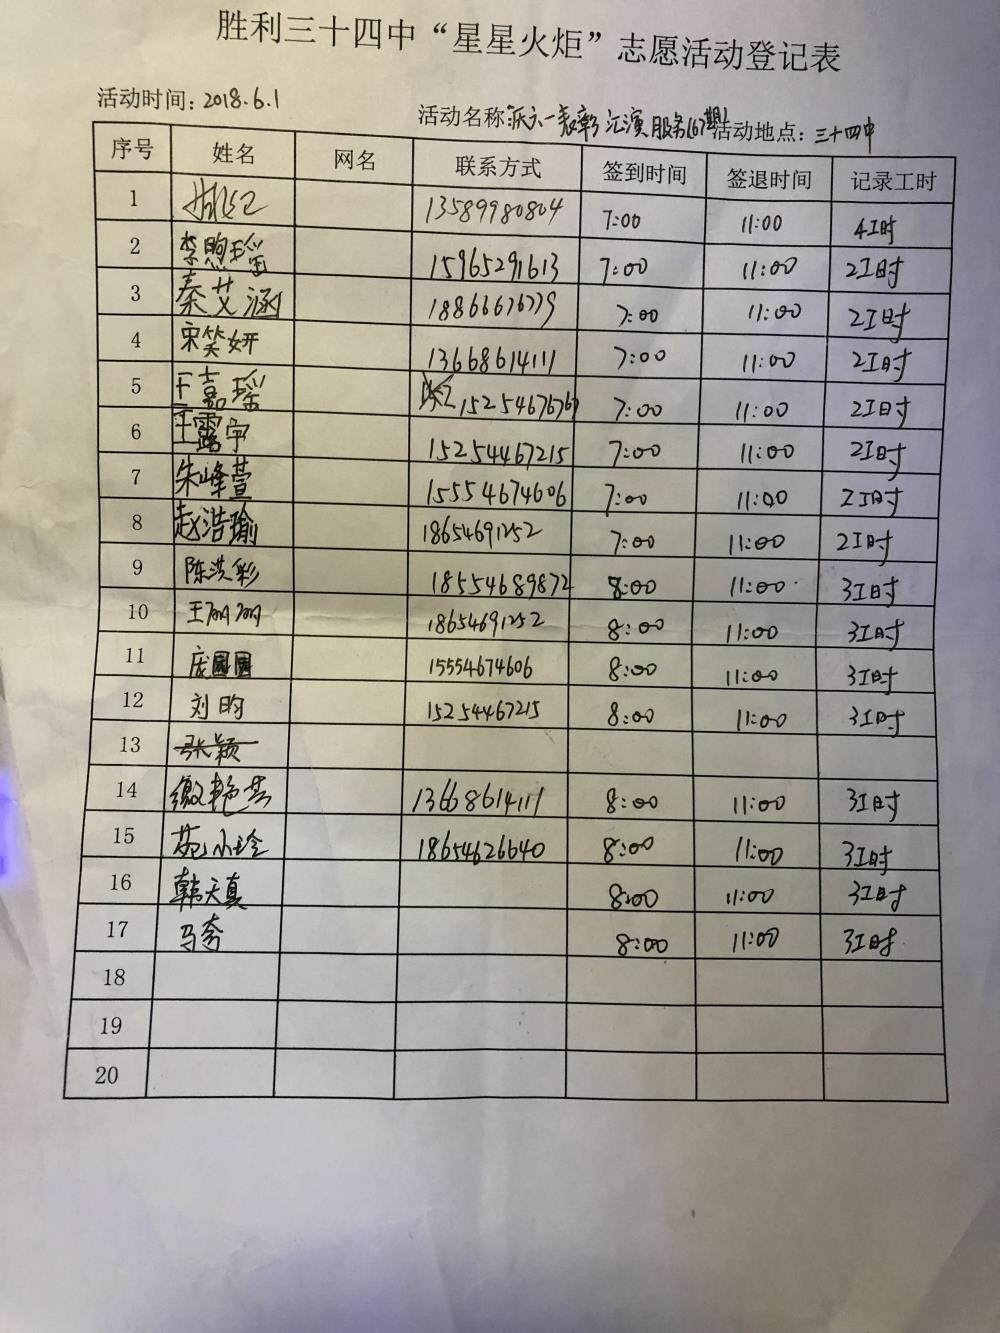 胜利三十四中“星星火炬”志愿活动登记表
活动时间：2018.6.1 活动名称：庆六一表彰汇演服务(67期) 活动地点：三十四中
序号 姓名 网名 联系方式 签到时间 签退时间 记录工时
1 13589980804 7:00 11:00 4工时
2 李煦瑶 15965291613 7:00 11:00 2工时
3 秦艾涵 18866676779 7:00 11:00 2工时
4 宋笑妍 13668614111 7:00 11:00 2工时
5 王嘉瑶 15254676767 7:00 11:00 2工时
6 王露宇 15254467215 7:00 11:00 2工时
7 朱峰萱 15554674606 7:00 11:00 2工时
8 赵浩瑜 18654691252 7:00 11:00 2工时
9 陈洪彩 18554689872 8:00 11:00 3工时
10 王丽丽 18654691252 8:00 11:00 3工时
11 庞圆圆 15554674606 8:00 11:00 3工时
12 刘昀 15254467215 8:00 11:00 3工时
13 张颖
14 缴艳芬 13668614111 8:00 11:00 3工时
15 苑小玲 18654626640 8:00 11:00 3工时
16 韩天真 8:00 11:00 3工时
17 马 8:00 11:00 3工时
18
19
20